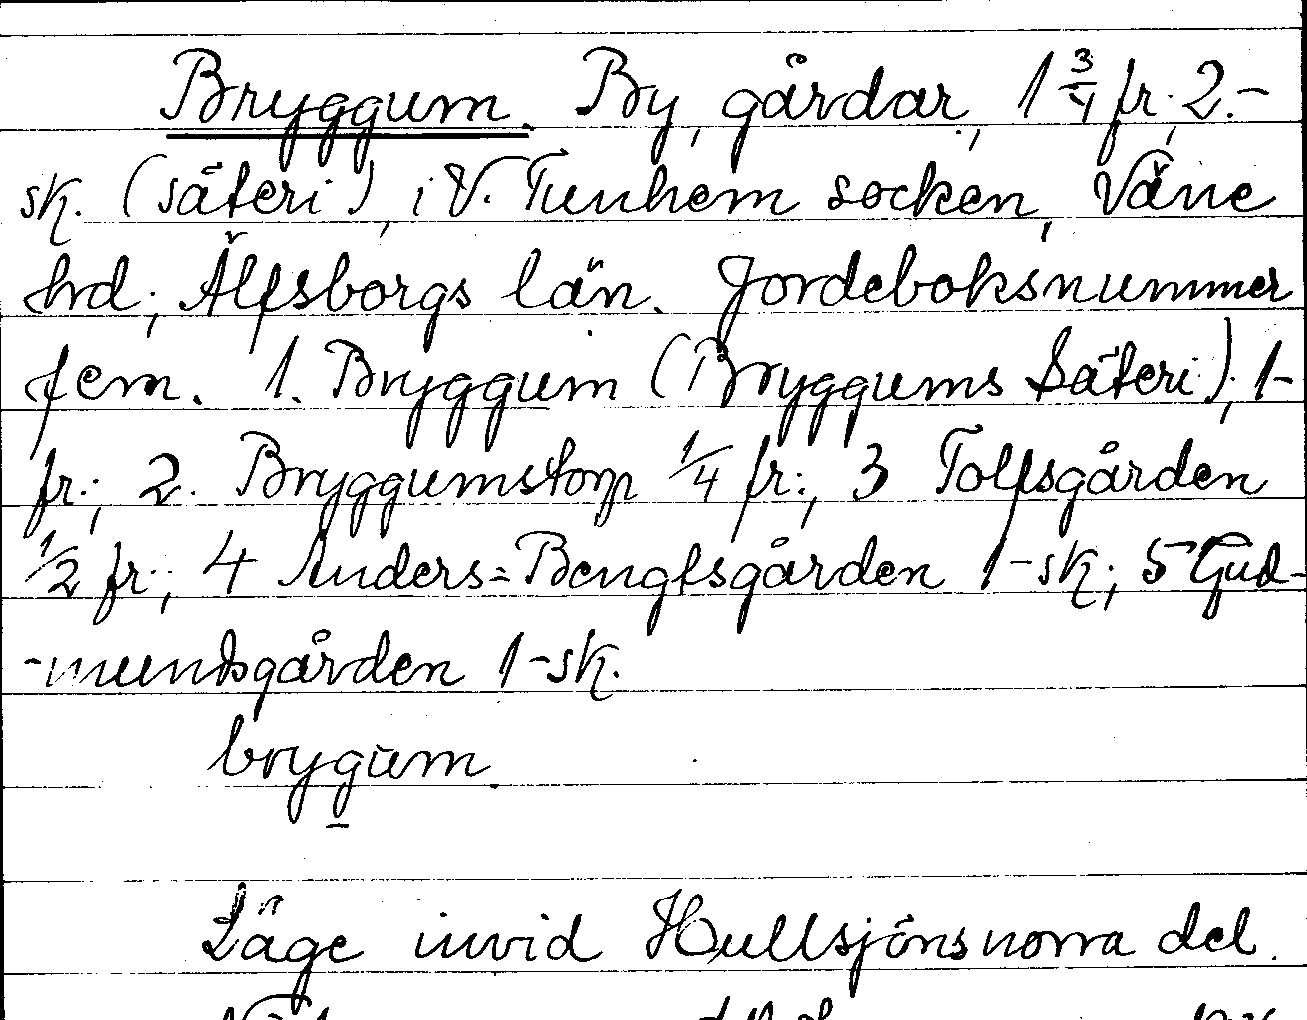 Bryggum. By, gårdar, 1 3/4 fr; 2.-
sk. (säteri), i V. Tunhem socken, Väne
hrd; Älfsborgs län. Jordeboksnummer
fem. 1. Bryggum (Bryggums Säteri); 1-
fr.; 2. Bryggumstorp 1/4 fr:, 3 Tolfsgården
1/2 fr.; 4 Anders=Bengtsgården 1-sk; 5 Gud-
-mundsgården 1-sk.
brygum.
Läge invid Hullsjöns norra del.